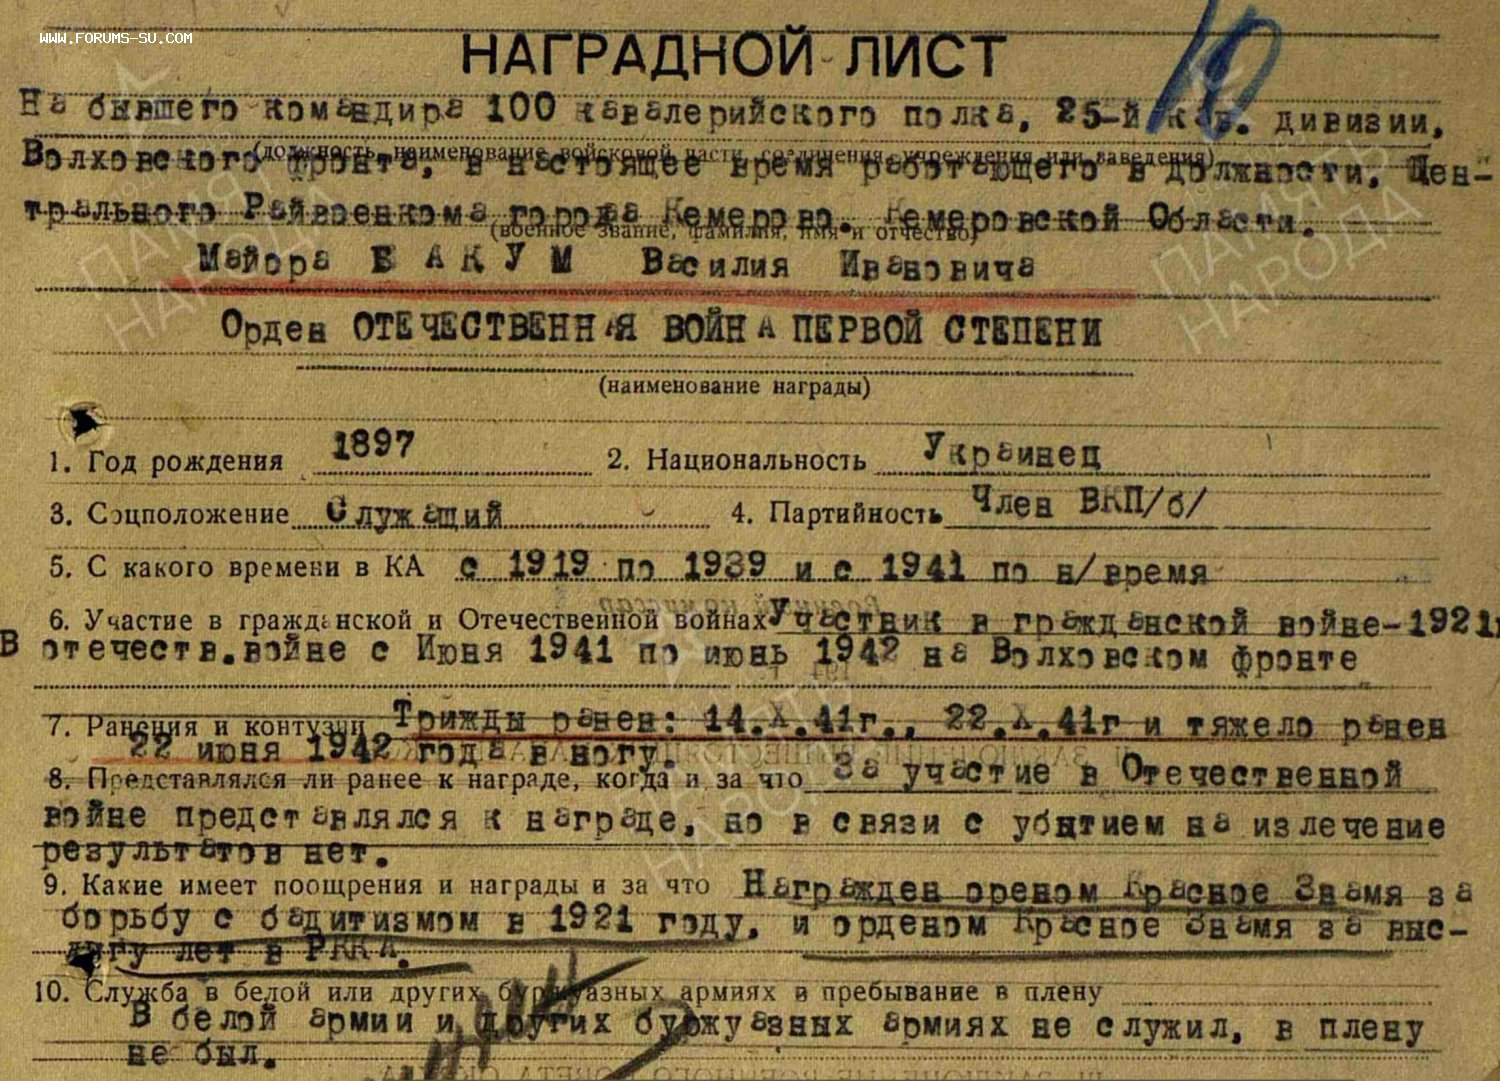 WWW.FORUMS-SU.COM
10
НАГРАДНОЙ ЛИСТ
На бывшего командира 100 кавалерийского полка, 25-й кав. дивизии,
(должность, наименование войсковой части, соединения, учреждения или заведения)
Волховского фронта, в настоящее время работающего в должности, Цен-
трального Райвоенкома города Кемерово. Кемеровской Области.
(военное звание, фамилия, имя и отчество)
Майора БАКУМ Василия Ивановича
Орден ОТЕЧЕСТВЕННАЯ ВОЙНА ПЕРВОЙ СТЕПЕНИ
(наименование награды)
1. Год рождения 1897 2. Национальность Украинец
3. Соцположение Служащий 4. Партийность Член ВКП/б/
5. С какого времени в КА с 1919 по 1939 и с 1941 по н/время
6. Участие в гражданской и Отечественной войнах Участник в гражданской войне-1921г
В отечеств.войне с Июня 1941 по июнь 1942 на Волховском фронте
7. Ранения и контузии Трижды ранен: 14.X.41г., 22.X.41г и тяжело ранен
22 июня 1942 года в ногу.
8. Представлялся ли ранее к награде, когда и за что За участие в Отечественной
войне представлялся к награде, но в связи с убытием на излечение
результатов нет.
9. Какие имеет поощрения и награды и за что Награжден ореном Красное Знамя за
борьбу с бадитизмом в 1921 году, и орденом Красное Знамя за выс-
лугу лет в РККА.
10. Служба в белой или других буржуазных армиях и пребывание в плену
В белой армии и других буржуазных армиях не служил, в плену
не был.
ПАМЯТЬ НАРОДА
ПАМЯТЬ НАРОДА
ПАМЯТЬ НАРОДА